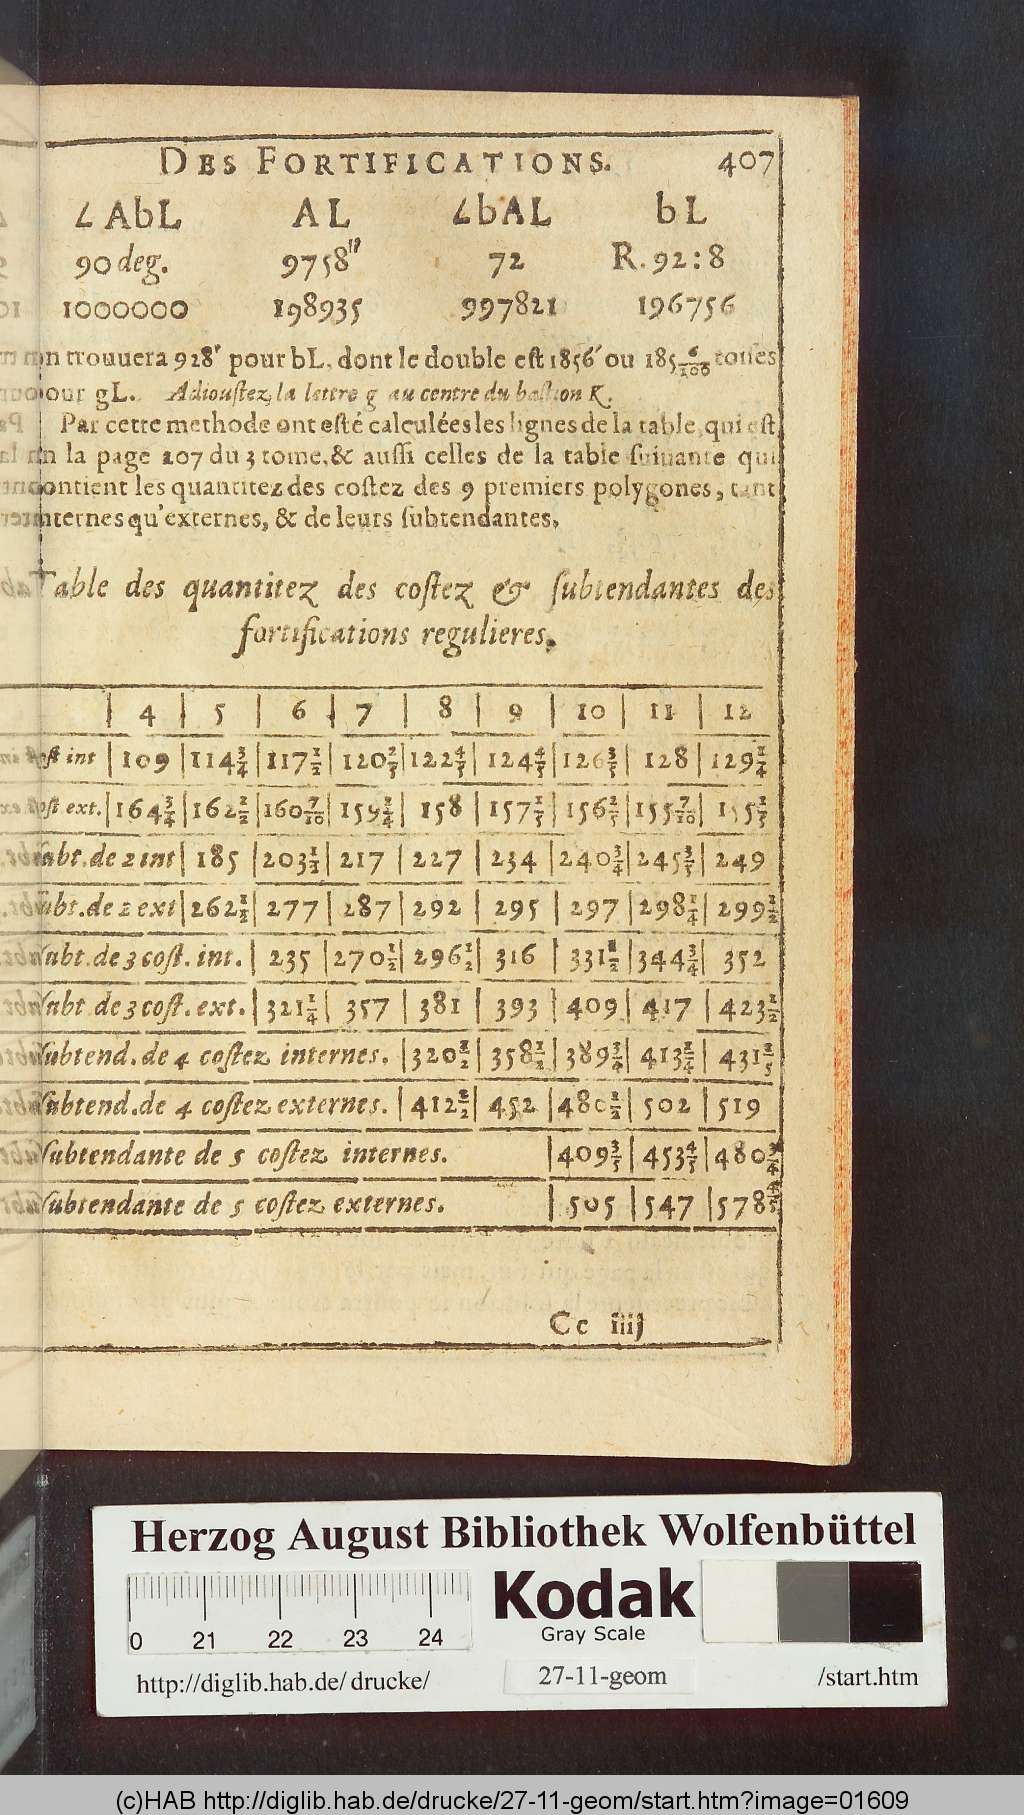 DES FORTIFICATIONS. 407
∠AbL AL ∠bAL bL
90 deg. 9758" 72 R. 92:8
1000000 198935 997821 196756
on trouuera 928' pour bL, dont le double est 1856' ou 185 6/100 toises
pour gL. Adioustez la lettre g au centre du bastion K.
Par cette methode ont esté calculées les lignes de la table, qui est
en la page 207 du 3 tome, & aussi celles de la table suiuante qui
contient les quantitez des costez des 9 premiers polygones, tant
internes qu'externes, & de leurs subtendantes.
Table des quantitez des costez & subtendantes des
fortifications regulieres.
| 4 | 5 | 6 | 7 | 8 | 9 | 10 | 11 | 12
cost int | 109 | 114 3/4 | 117 1/2 | 120 2/5 | 122 4/5 | 124 4/5 | 126 3/5 | 128 | 129 1/4
cost ext. | 164 3/4 | 162 1/2 | 160 7/10 | 159 1/4 | 158 | 157 1/5 | 156 2/5 | 155 7/10 | 155 1/5
subt. de 2 int | 185 | 203 1/2 | 217 | 227 | 234 | 240 3/4 | 245 3/5 | 249
subt. de 2 ext | 262 1/2 | 277 | 287 | 292 | 295 | 297 | 298 1/4 | 299 1/2
subt. de 3 cost. int. | 235 | 270 1/2 | 296 1/2 | 316 | 331 1/2 | 344 3/4 | 352
subt de 3 cost. ext. | 321 1/4 | 357 | 381 | 393 | 409 | 417 | 423 1/2
subtend. de 4 costez internes. | 320 1/2 | 358 1/2 | 389 3/4 | 413 1/4 | 431 3/5
subtend. de 4 costez externes. | 412 1/2 | 452 | 480 1/2 | 502 | 519
subtendante de 5 costez internes. | 409 3/5 | 453 4/5 | 480 3/4
subtendante de 5 costez externes. | 505 | 547 | 578 4/5
Cc iiij
Herzog August Bibliothek Wolfenbüttel
0 21 22 23 24
Kodak
Gray Scale
http://diglib.hab.de/drucke/ 27-11-geom /start.htm
(c)HAB http://diglib.hab.de/drucke/27-11-geom/start.htm?image=01609